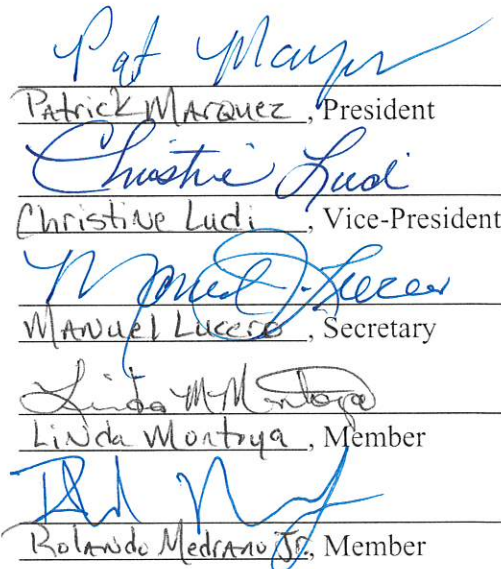 Pat
Patrick Marquez, President
Christine Ludi
Christine Ludi, Vice-President
Manuel J. Lucero
Manuel Lucero, Secretary
Linda M Montoya
Linda Montoya, Member
Rolando Medrano Jr., Member